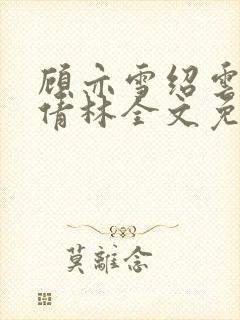 顾亦雪绍雲
倩林全文免
莫離念